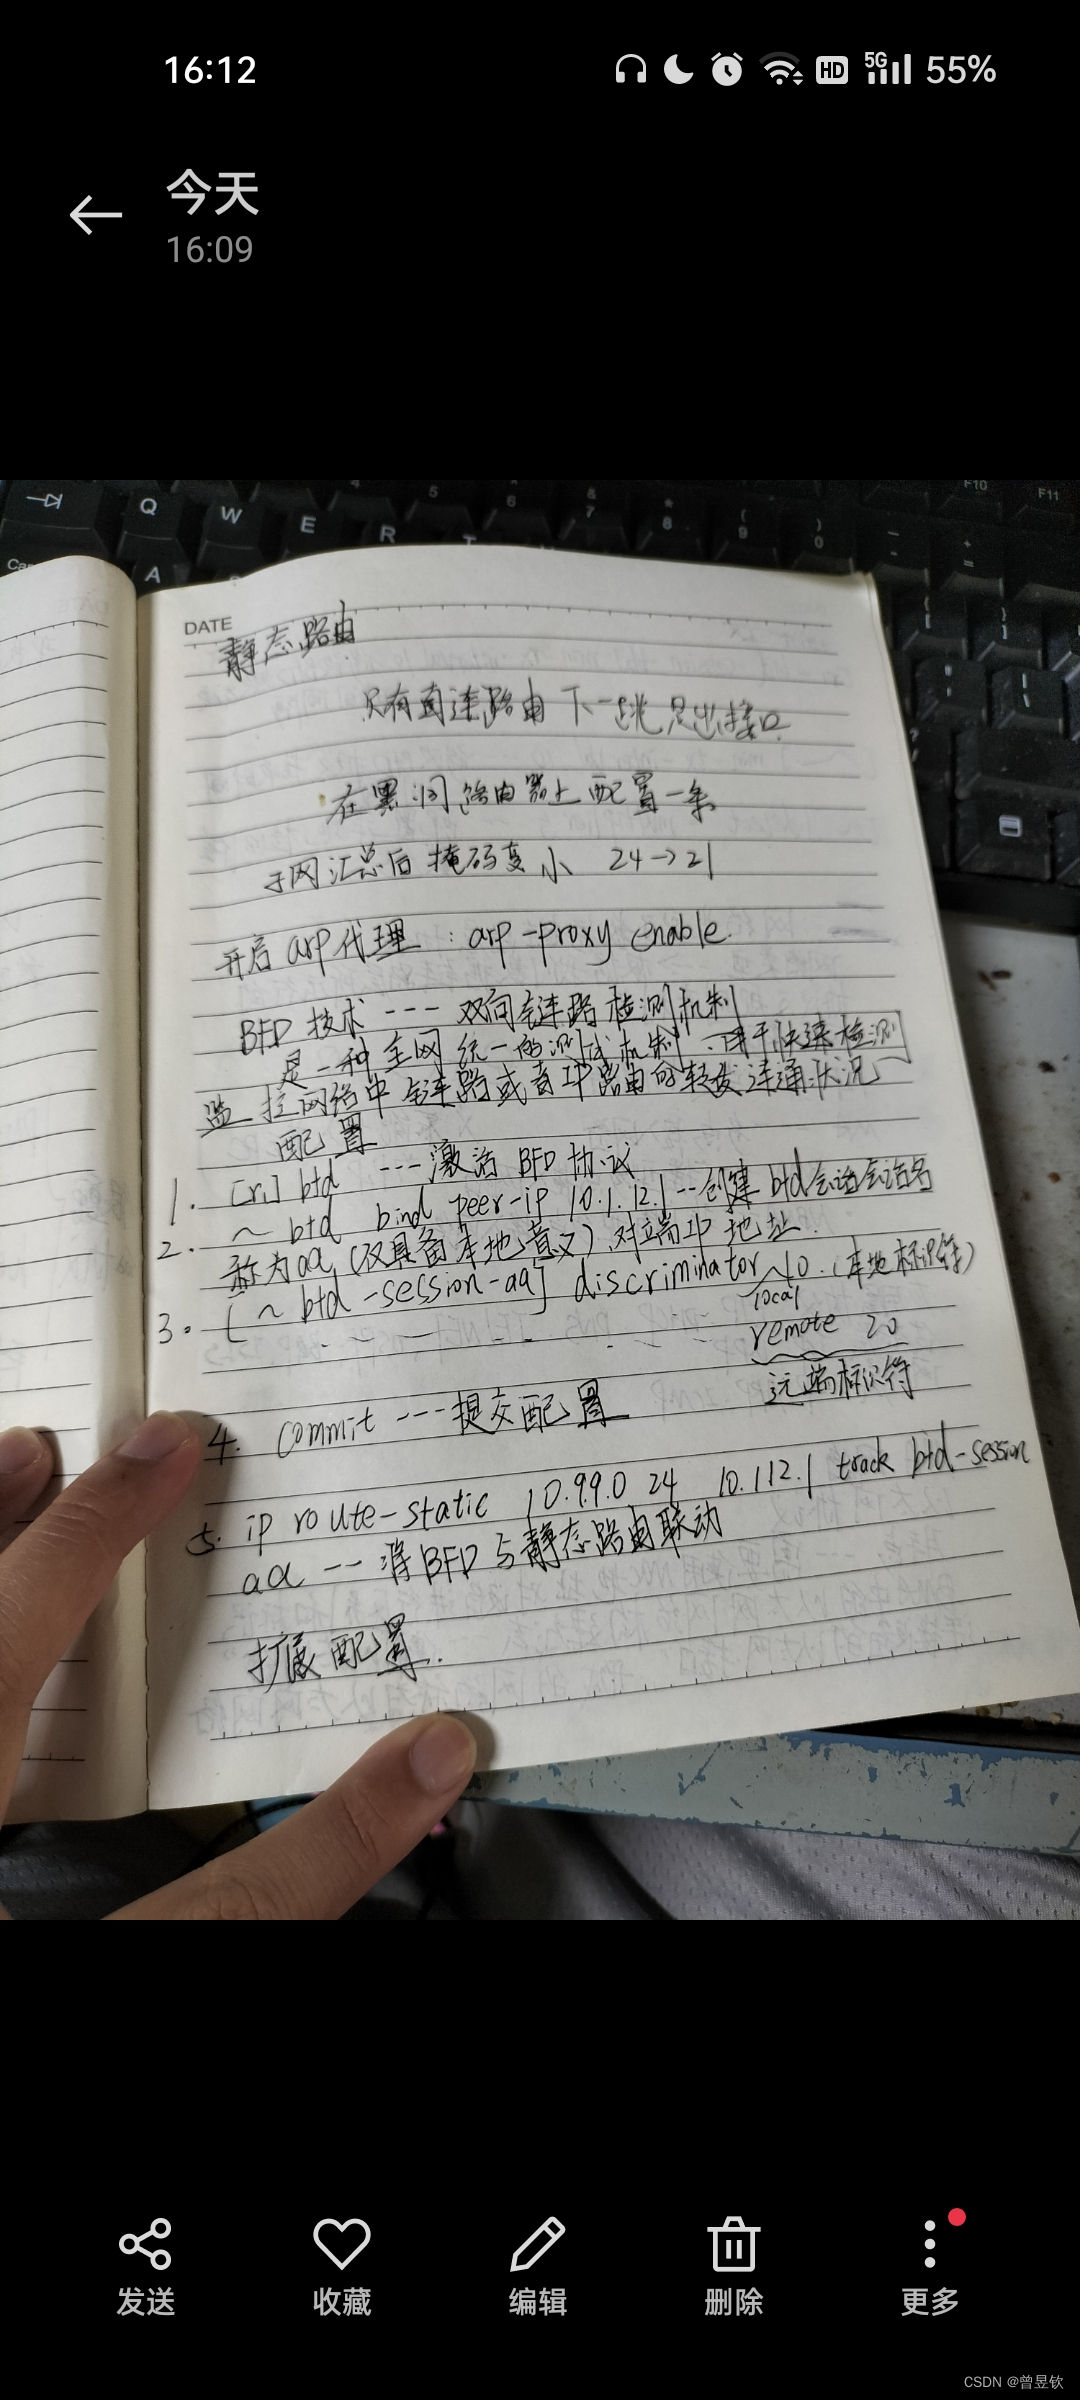 16:12
HD 5G 55%
今天
16:09
Q W E R T
A
F10 F11
DATE
静态路由
只有直连路由下一跳是出接口
在黑洞路由器上配置一条
子网汇总后 掩码变小 24->21
开启arp代理 : arp-proxy enable.
BFD 技术 --- 双向链路检测机制
是一种全网统一的测试机制、用于快速检测
监控网络中链路或者IP路由的转发连通状况
配置
1. [r1] bfd --- 激活 BFD 协议
2. ~ bfd bind peer-ip 10.1.12.1--创建bfd会话会话名
称为aa (仅具备本地意义),对端IP地址.
3. [ ~ bfd -session-aa] discriminator ~10. (本地标识符)
local
remote 20
远端标识符
4. commit ---提交配置
5. ip route-static 10.99.0 24 10.112.1 track bfd-session
aa -- 将BFD与静态路由联动
扩展配置.
发送 收藏 编辑 删除 更多
CSDN @曾昱钦